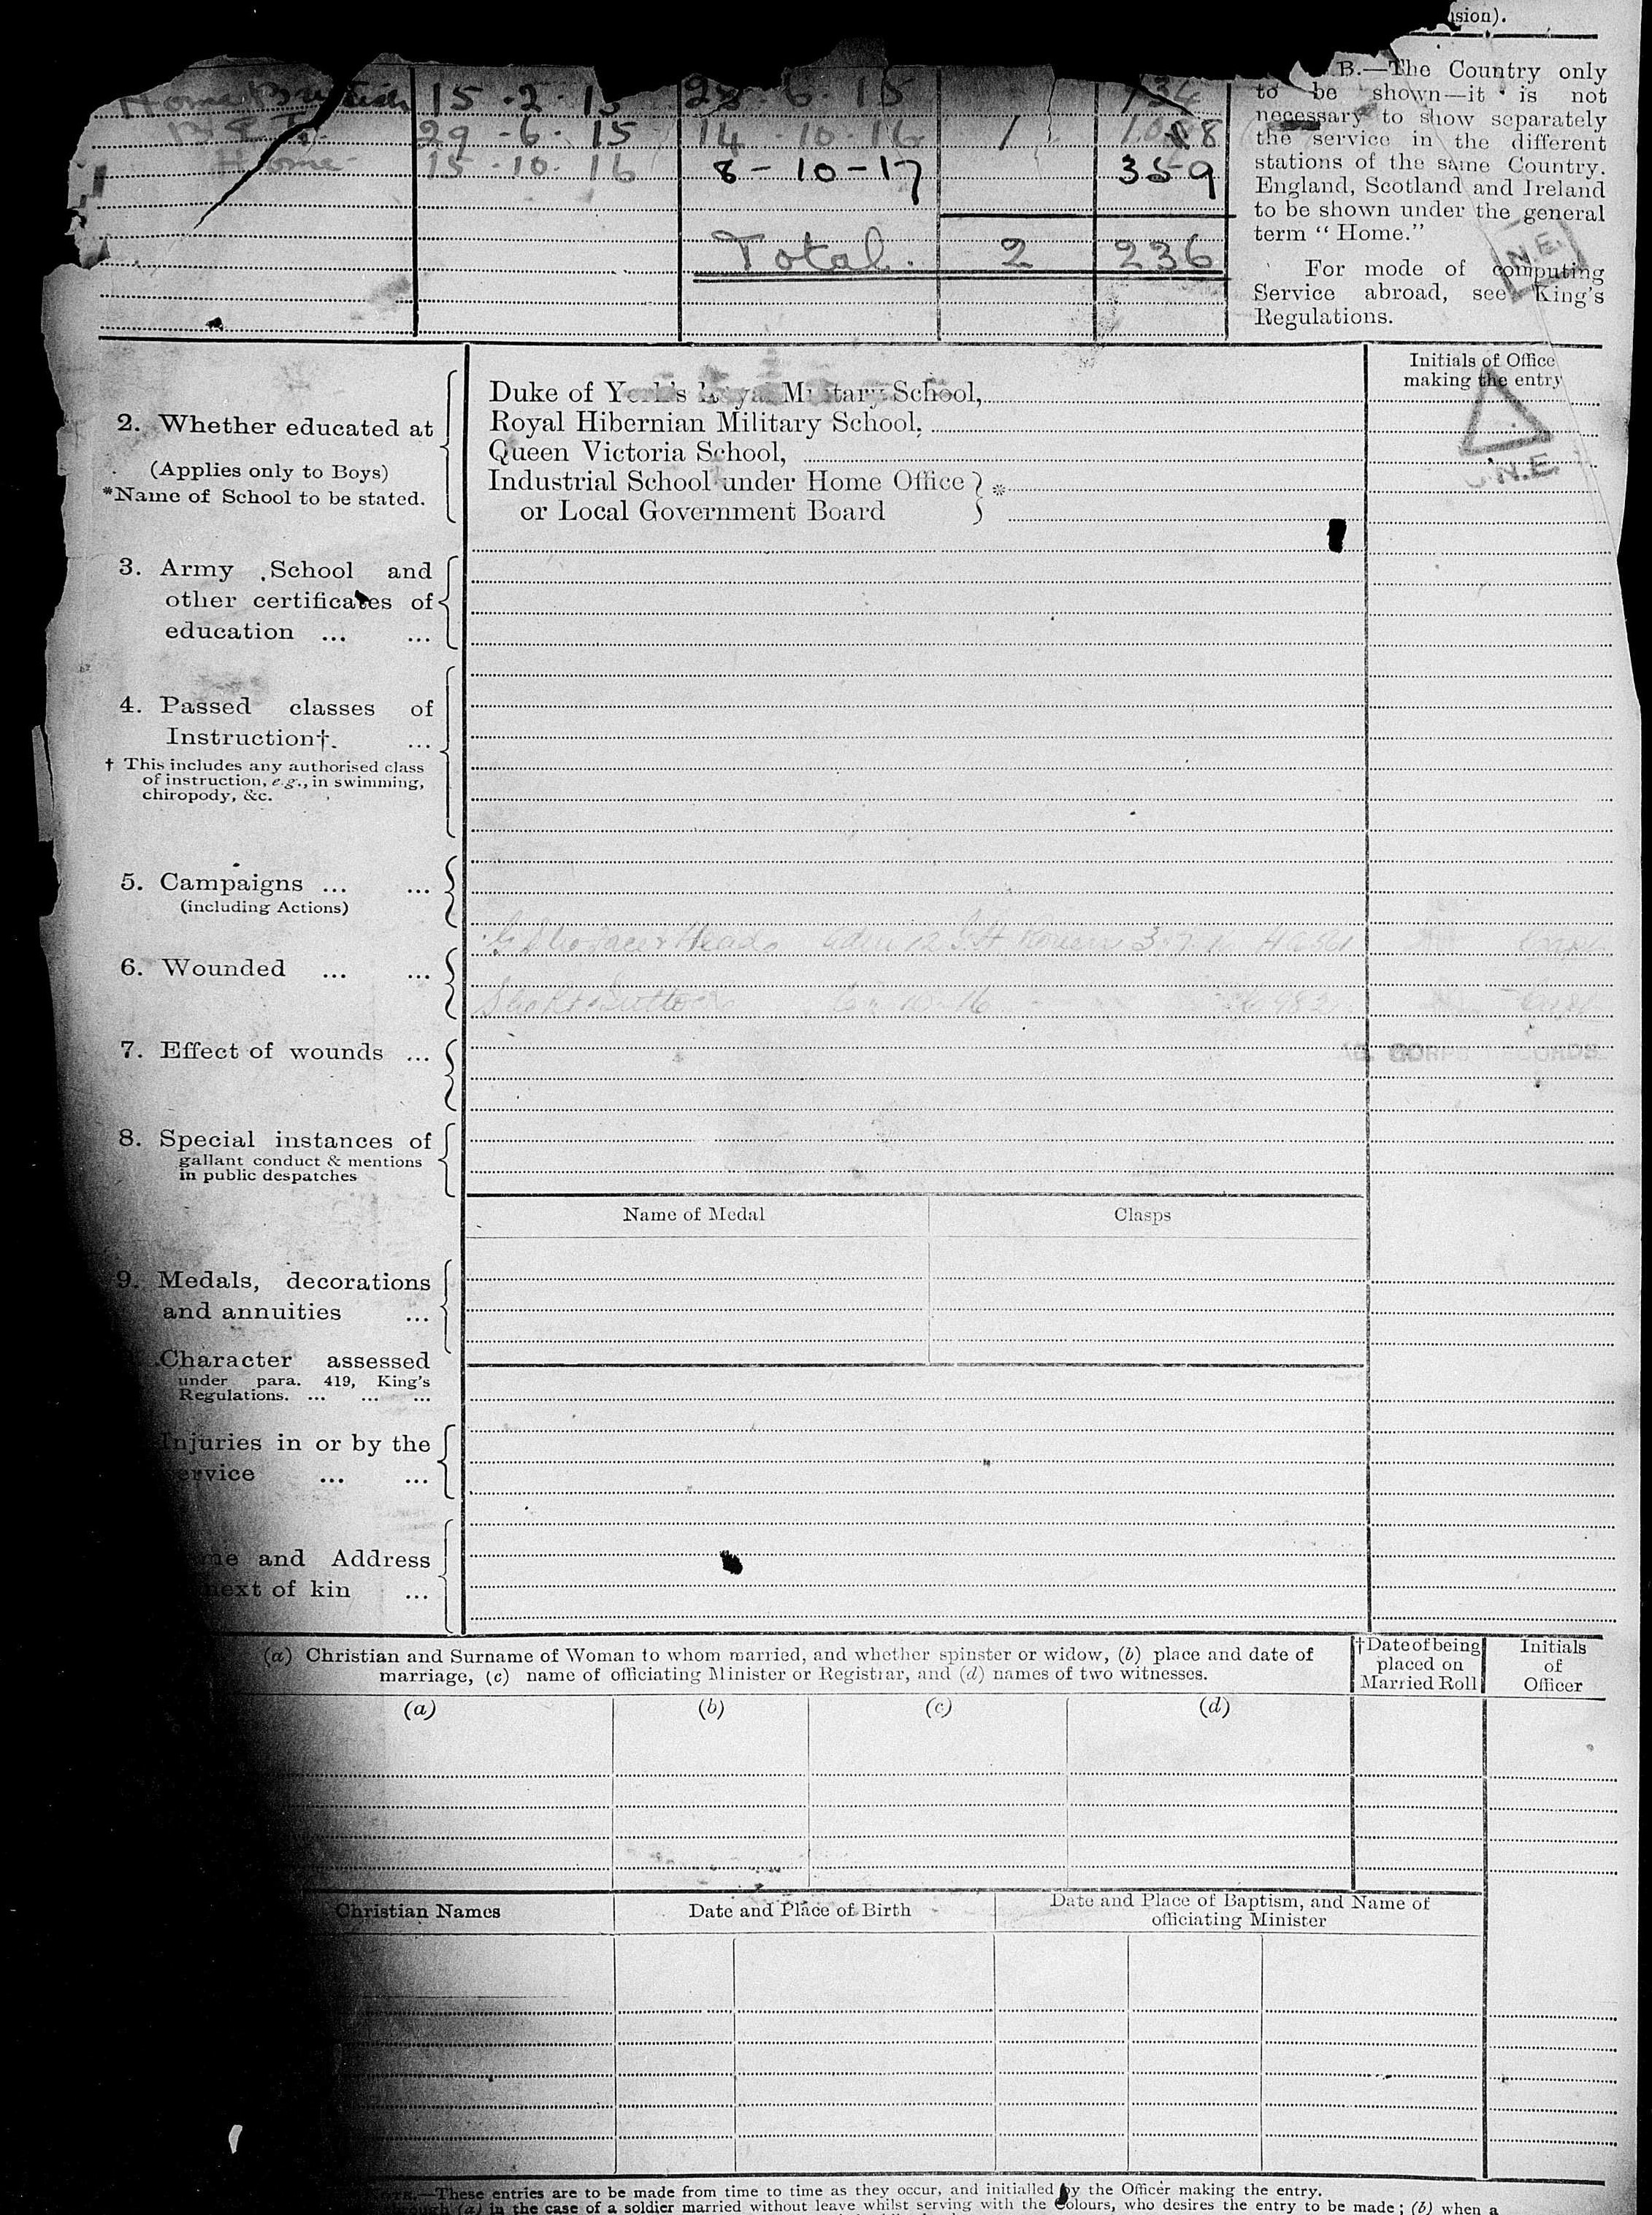 sion).
Home British 15 . 2 . 15 28 . 6 . 15 134
B.E.F. 29 . 6 . 15 14 . 10 . 16 1 108
Home 15 . 10 . 16 8 - 10 - 17 359
Total. 2 236
B.—The Country only
to be shown—it is not
necessary to show separately
the service in the different
stations of the same Country.
England, Scotland and Ireland
to be shown under the general
term “ Home.”
N.E.
For mode of computing
Service abroad, see King's
Regulations.
Initials of Office
making the entry
N.E.
2. Whether educated at
(Applies only to Boys)
*Name of School to be stated.
Duke of York's Royal Military School,
Royal Hibernian Military School,
Queen Victoria School,
Industrial School under Home Office } *
or Local Government Board
3. Army School and
other certificates of
education ... ...
4. Passed classes of
Instruction†. ...
† This includes any authorised class
of instruction, e.g., in swimming,
chiropody, &c.
5. Campaigns ... ...
(including Actions)
6. Wounded ... ...
Head 12 Rouen
Buttock 6 . 10 . 16
7. Effect of wounds ...
CORPS RECORDS
8. Special instances of
gallant conduct & mentions
in public despatches
Name of Medal Clasps
9. Medals, decorations
and annuities ...
Character assessed
under para. 419, King's
Regulations. ... ... ...
Injuries in or by the
ervice ... ...
me and Address
next of kin ...
(a) Christian and Surname of Woman to whom married, and whether spinster or widow, (b) place and date of
marriage, (c) name of officiating Minister or Registrar, and (d) names of two witnesses.
† Date of being
placed on
Married Roll
Initials
of
Officer
(a) (b) (c) (d)
Christian Names Date and Place of Birth Date and Place of Baptism, and Name of
officiating Minister
—These entries are to be made from time to time as they occur, and initialled by the Officer making the entry.
through (a) in the case of a soldier married without leave whilst serving with the Colours, who desires the entry to be made; (b) when a